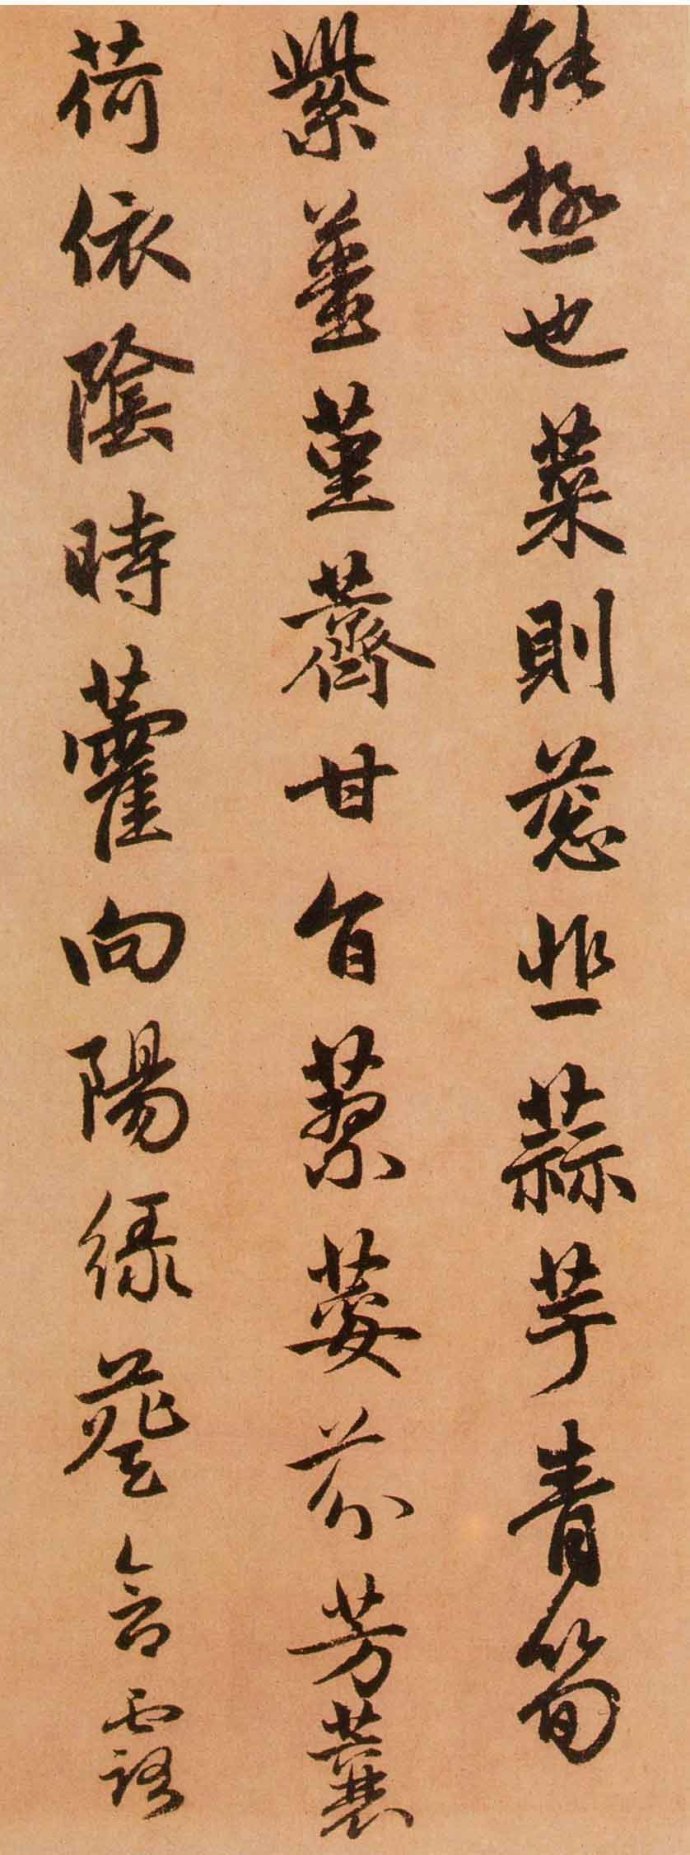 能極也菜則葱韭蒜芋青筍
紫薑堇薺甘旨蓼荽芬芳蘘
荷依陰時藿向陽綠葵含露